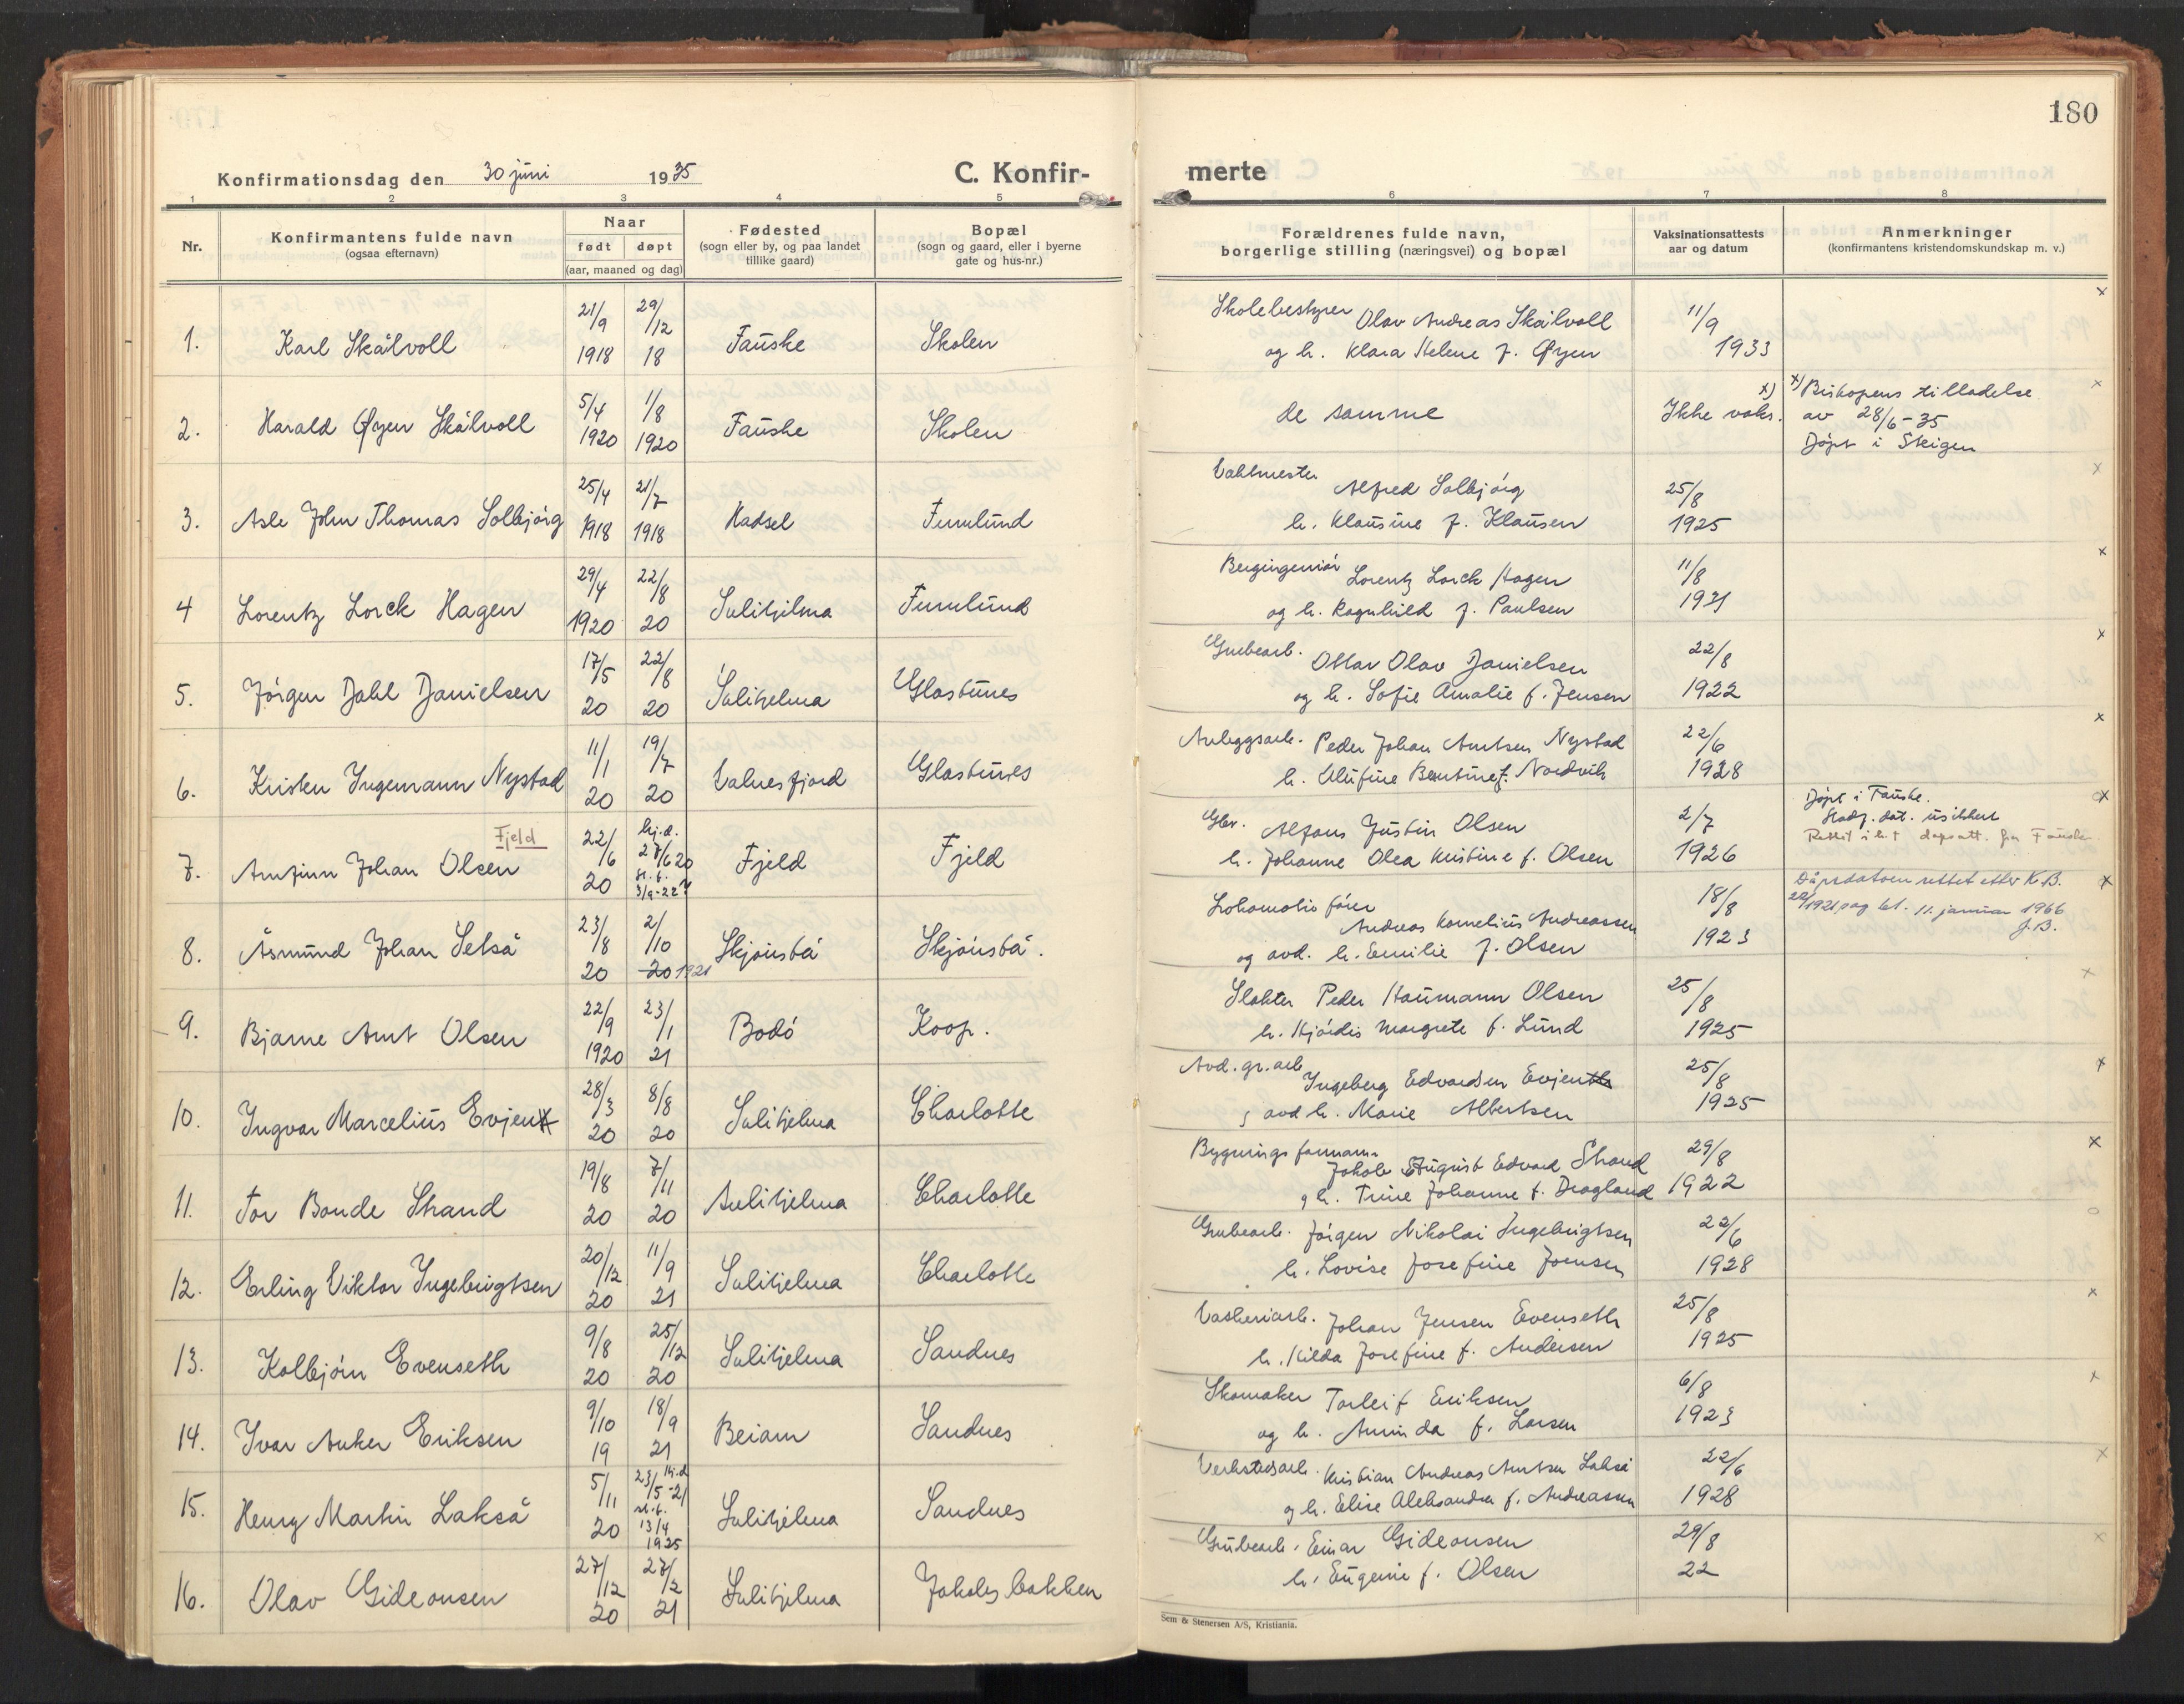 180
Konfirmationsdag den 30 juni 1935
C. Konfir-
merte
1 2 3 4 5 6 7 8
Nr.
Konfirmantens fulde navn
(ogsaa efternavn)
Naar
født døpt
(aar, maaned og dag)
Fødested
(sogn eller by, og paa landet
tillike gaard)
Bopæl
(sogn og gaard, eller i byerne
gate og hus-nr.)
Forældrenes fulde navn,
borgerlige stilling (næringsvei) og bopæl
Vaksinationsattests
aar og datum
Anmerkninger
(konfirmantens kristendomskundskap m. v.)
1. Karl Skålvoll 21/9 1918 29/12 18 Fauske Skolen
Skolebestyrer Olav Andreas Skålvoll 11/9 x
og h. Klara Helene f. Øyen 1933
2. Harald Øyen Skålvoll 5/4 1920 1/8 1920 Fauske Skolen
de samme x) Ikke vaks. x) Biskopens tilladelse x
av 28/6-35
Døpt i Steigen
3. Asle John Thomas Solbjørg 25/4 1918 21/7 1918 Hadsel Furulund
Vaktmester Alfred Solbjørg 25/8 x
h. Klausine f. Klausen 1925
4 Lorentz Lorck Hagen 29/4 1920 22/8 20 Sulitjelma Furulund
Bergingeniør Lorentz Lorck Hagen 11/8 x
og h. Ragnhild f. Paulsen 1921
5. Jørgen Dahl Danielsen 17/5 20 22/8 20 Sulitjelma Glastunes
Grubearb. Ottar Olav Danielsen 22/8 x
og h. Sofie Amalie f. Jensen 1922
6. Kristen Ingemann Nystad 11/1 20 19/7 20 Valnesfjord Glastunes
Anleggsarb. Peder Johan Arntsen Nystad 22/6 x
h. Olufine Bentine f. Nordvik 1928
7. Arnfinn Johan Olsen Fjeld 22/6 20 hj.d. 27/6 20 st. f. 3/9-22 Fjeld Fjeld
Gbr. Alfons Justin Olsen 2/7 Døpt i Fauske. x
Stadf. dat. usikkert
h. Johanne Olea Kristine f. Olsen 1926 Rettet i h.t dåpsatt. fra Fauske
8. Åsmund Johan Selså 23/8 20 2/10 20 1921 Skjønstå Skjønstå.
Lokomotivfører 18/8 Dåpsdatoen rettet etter K.B. x
Andreas Kornelius Andreassen 1921 pag 11. januar 1966
og avd. h. Emilie f. Olsen 1923 J.B.
9. Bjarne Arnt Olsen 22/9 1920 23/1 21 Bodø Koop.
Slakter Peder Haumann Olsen 25/8 x
h. Hjørdis Margrete f. Lund 1925
10. Ingvar Marcelius Evjenth 28/3 20 8/8 20 Sulitjelma Charlotte
Avd. gr. arb Ingeberg Edvardsen Evjenth 25/8 x
g avd h. Marie Albertsen 1925
11. Tor Bonde Strand 19/8 20 7/11 20 Sulitjelma Charlotte
Bygningsformann Jakob August Edvard Strand 29/8 x
g h. Trine Johanne f. Dragland 1922
12. Erling Viktor Ingebrigtsen 20/12 20 11/9 21 Sulitjelma Charlotte
Grubearb. Jørgen Nikolai Ingebrigtsen 22/6 o
h. Lovise Josefine Joensen 1928
13. Kolbjørn Evenseth 9/8 20 25/12 20 Sulitjelma Sandnes
Vaskeriarb. Johan Jensen Evenseth 25/8 x
h. Hilda Josefine f. Andersen 1925
14. Ivar Anker Eriksen 9/10 19 18/9 21 Beiarn Sandnes
Skomaker Torleif Eriksen 6/8 x
og h. Arninda f. Larsen 1923
15. Henry Martin Lakså 5/11 20 hj.d 23/5-21 st.f. 13/4 1925 Sulitjelma Sandnes
Verkstedsarb. Kristian Andreas Arntsen Lakså 22/6 x
og h. Elise Aleksandra f. Andreassen 1928
16. Olav Gideonsen 27/12 20 27/2 21 Sulitjelma Jakobsbakken
Grubearb. Einar Gideonsen 29/8 x
h. Eugenie f. Olsen 22
Sem & Stenersen A/S, Kristiania.